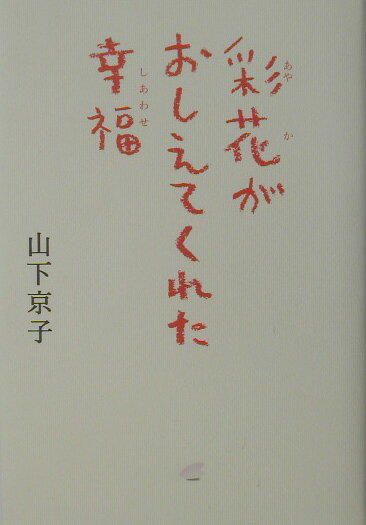 彩花が
おしえてくれた
幸福
あや か
しあわせ
山下京子